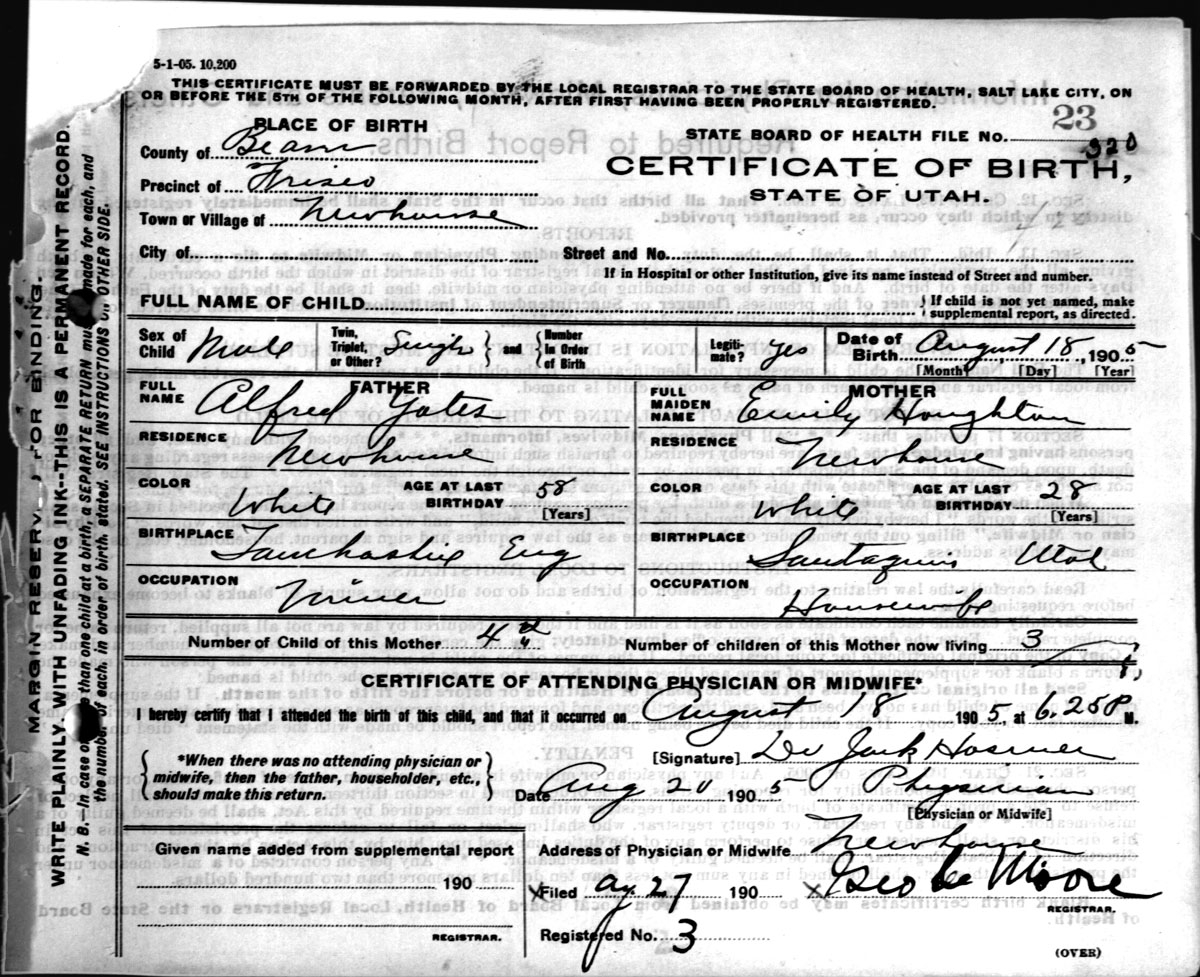 5-1-05. 10,200
THIS CERTIFICATE MUST BE FORWARDED BY THE LOCAL REGISTRAR TO THE STATE BOARD OF HEALTH, SALT LAKE CITY, ON
OR BEFORE THE 5TH OF THE FOLLOWING MONTH, AFTER FIRST HAVING BEEN PROPERLY REGISTERED.
23
PLACE OF BIRTH
STATE BOARD OF HEALTH FILE No. 320
County of
CERTIFICATE OF BIRTH,
Precinct of Frisco
STATE OF UTAH.
Town or Village of Newhouse
City of
Street and No.
If in Hospital or other Institution, give its name instead of Street and number.
FULL NAME OF CHILD
{ If child is not yet named, make supplemental report, as directed.
Sex of Child Male Twin, Triplet, or Other? Single } and { Number In Order of Birth Legiti-mate? Yes Date of Birth August 18, 1905
[Month] [Day] [Year]
FATHER
FULL NAME Alfred Yates
MOTHER
FULL MAIDEN NAME Emily Houghton
RESIDENCE Newhouse
RESIDENCE Newhouse
COLOR White AGE AT LAST BIRTHDAY 58 [Years]
COLOR White AGE AT LAST BIRTHDAY 28 [Years]
BIRTHPLACE Eng
BIRTHPLACE Santaquin Utah
OCCUPATION Miner
OCCUPATION Housewife
Number of Child of this Mother 4
Number of children of this Mother now living 3
CERTIFICATE OF ATTENDING PHYSICIAN OR MIDWIFE*
I hereby certify that I attended the birth of this child, and that it occurred on August 18 1905, at 6.25 P M.
{ *When there was no attending physician or midwife, then the father, householder, etc., should make this return. }
[Signature] Dr Jack Hosmer
Date Aug 20 1905 Physician
[Physician or Midwife]
Given name added from supplemental report
190
REGISTRAR.
Address of Physician or Midwife Newhouse
Filed Ag. 27 190 Geo Moore
REGISTRAR.
Registered No. 3
(OVER)
MARGIN RESERV FOR BINDING.
WRITE PLAINLY WITH UNFADING INK--THIS IS A PERMANENT RECORD.
N. B. In case of than one child at a birth, a SEPARATE RETURN mus made for each, and
the number of each, in order of birth, stated. SEE INSTRUCTIONS ON OTHER SIDE.